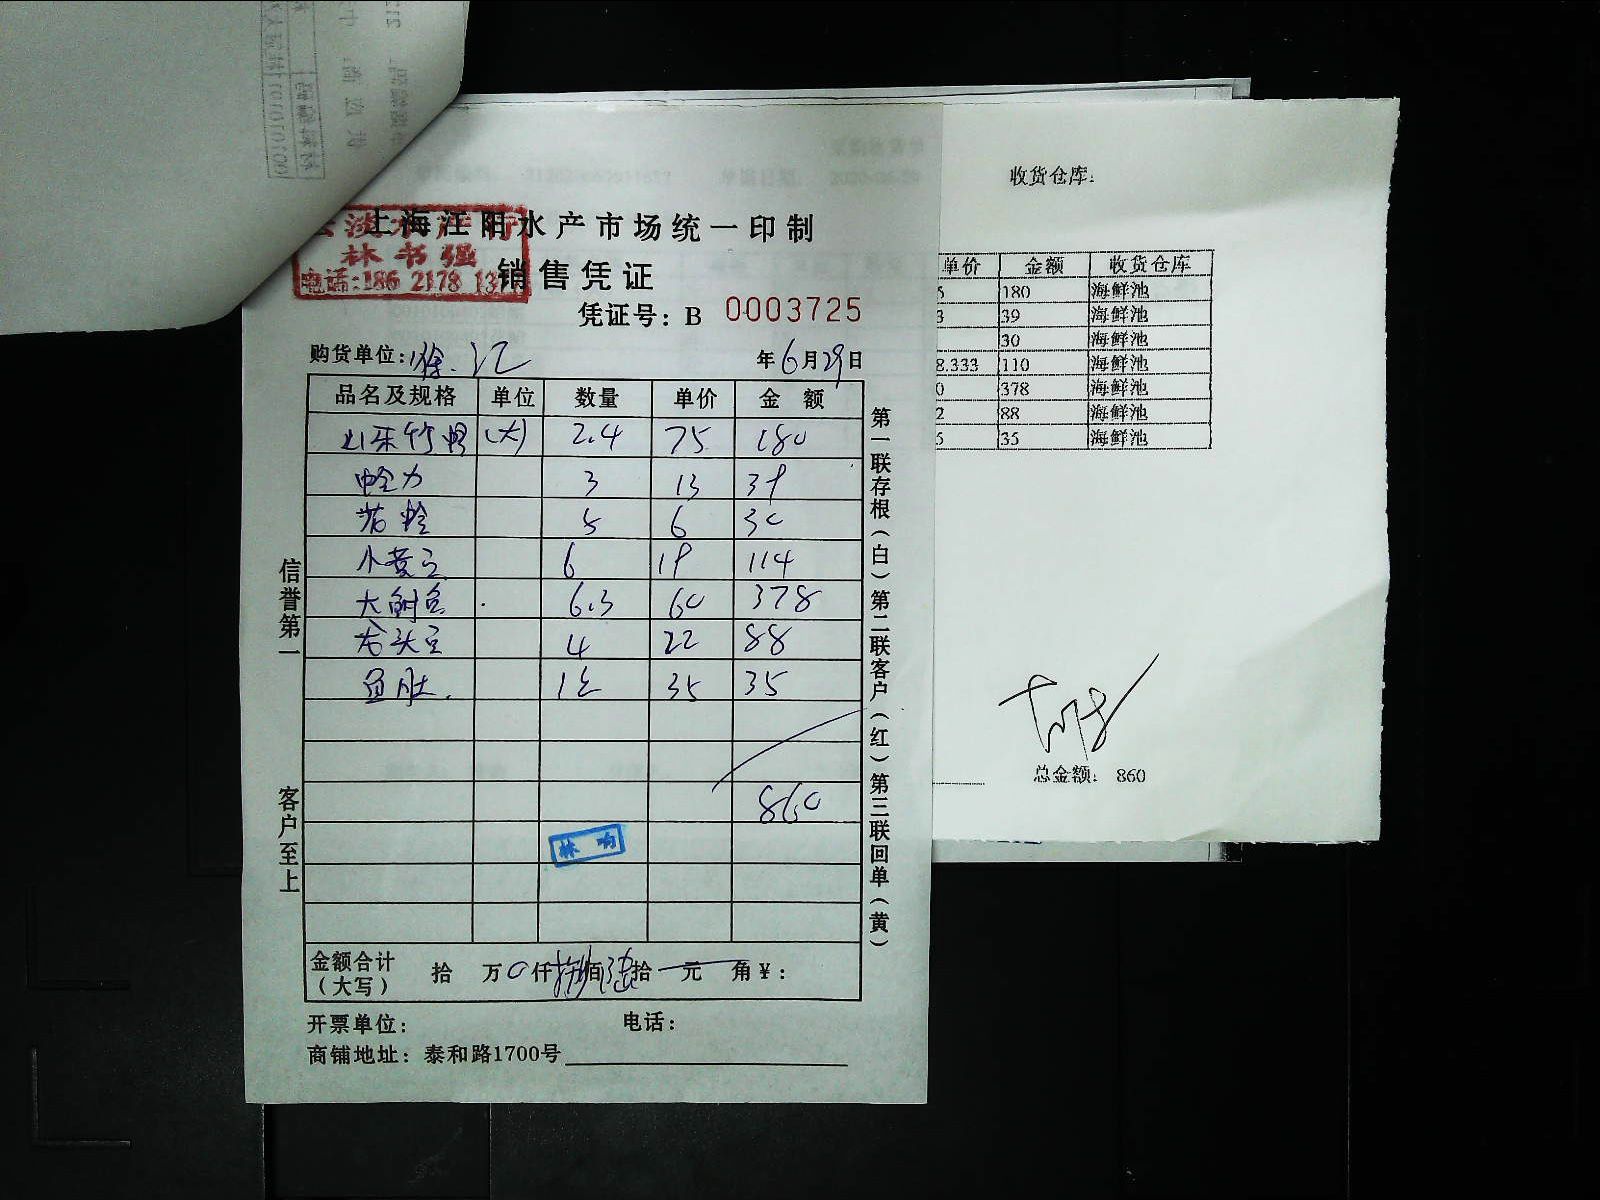 上海江阳水产市场统一印制
淡水产行
林书强
电话:186 2178 13
销售凭证
凭证号: B 0003725
购货单位: 徐汇 年 6 月 29 日
品名及规格 单位 数量 单价 金额
山东竹蛏 (大) 2.4 75 180
3 13 39
5 6 30
小黄鱼 6 19 114
6.3 60 378
龙头鱼 4 22 88
鱼肚 35 35
860
林响
金额合计(大写) 拾 万 0 仟 捌 佰 陆 拾 元 角 ¥:
开票单位: 电话:
商铺地址: 泰和路1700号
信誉第一 客户至上
第一联存根(白)第二联客户(红)第三联回单(黄)
收货仓库:
单价 金额 收货仓库
5 180 海鲜池
3 39 海鲜池
30 海鲜池
8.333 110 海鲜池
0 378 海鲜池
2 88 海鲜池
5 35 海鲜池
总金额: 860